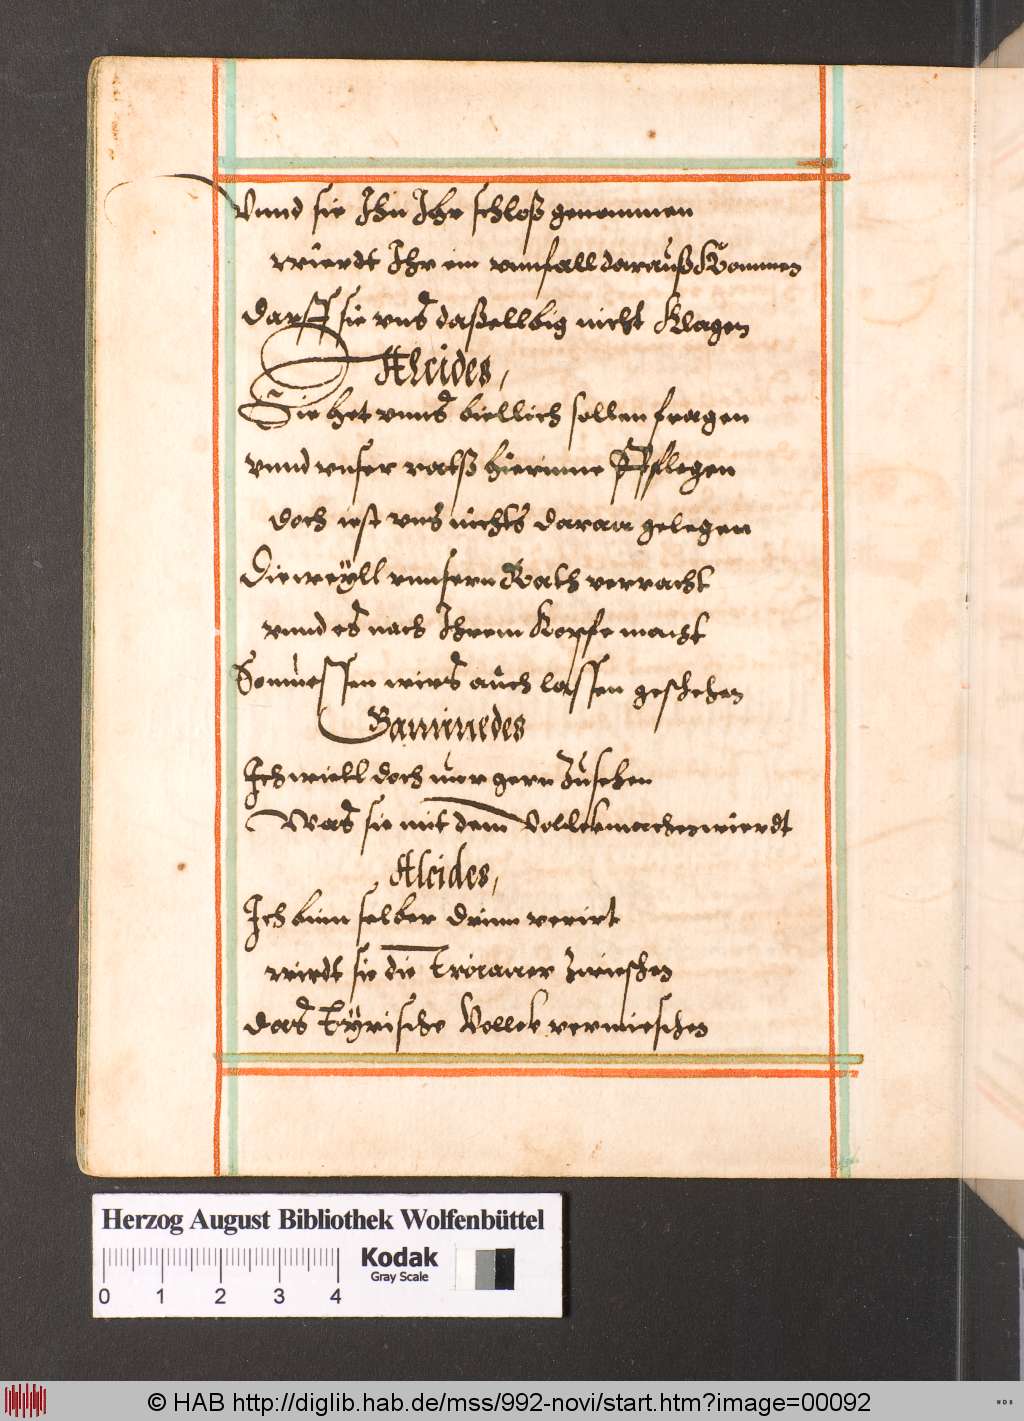 Vnnd sie Ihn Ihr schloß genommen
wierdt Ihr ein vnnfall darauß Kommen
darff sie vns daßellbig nicht Klagen
Alcides,
Sie het vnns biellich sollen fragen
vnnd vnser ratß hierinne Pflegen
doch iest vns nichts daran gelegen
Dieweÿll vnnsern Rath verracht
vnnd es nach Ihrem Kopfe macht
So muessen wirs auch lassen geschehen
Ganimedes
Ich wiell doch nur gern Zusehen
Was sie mit dem Vollek machen wierdt
Alcides,
Ich binn selber drinn verirt
wirdt sie die Troianer Zwieschen
das Tÿrische Vollek vermieschen
Herzog August Bibliothek Wolfenbüttel
Kodak
Gray Scale
0 1 2 3 4
© HAB http://diglib.hab.de/mss/992-novi/start.htm?image=00092